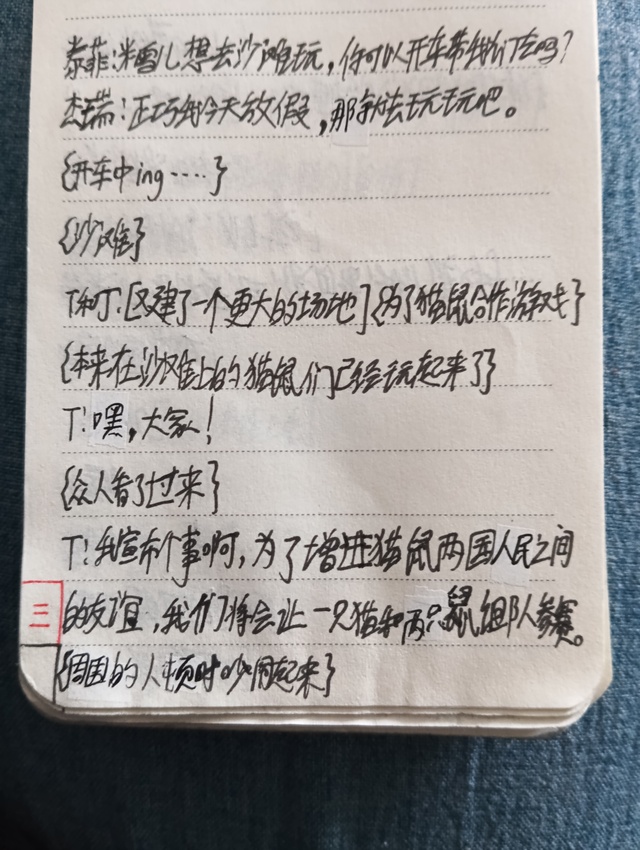 泰菲:米雪儿想去沙滩玩,你可以开车带我们去吗?
杰瑞:正巧我今天放假,那就去玩玩吧。
{开车中ing……}
{沙滩}
T和J:[又建了一个更大的场地]{为了猫鼠合作游戏}
{本来在沙滩上的猫鼠们已经玩起来了}
T:嘿,大家!
{众人看了过来}
T:我宣布个事啊,为了增进猫鼠两国人民之间
三
的友谊,我们将会让一只猫和两只鼠组队参赛。
{周围的人顿时吵闹起来}